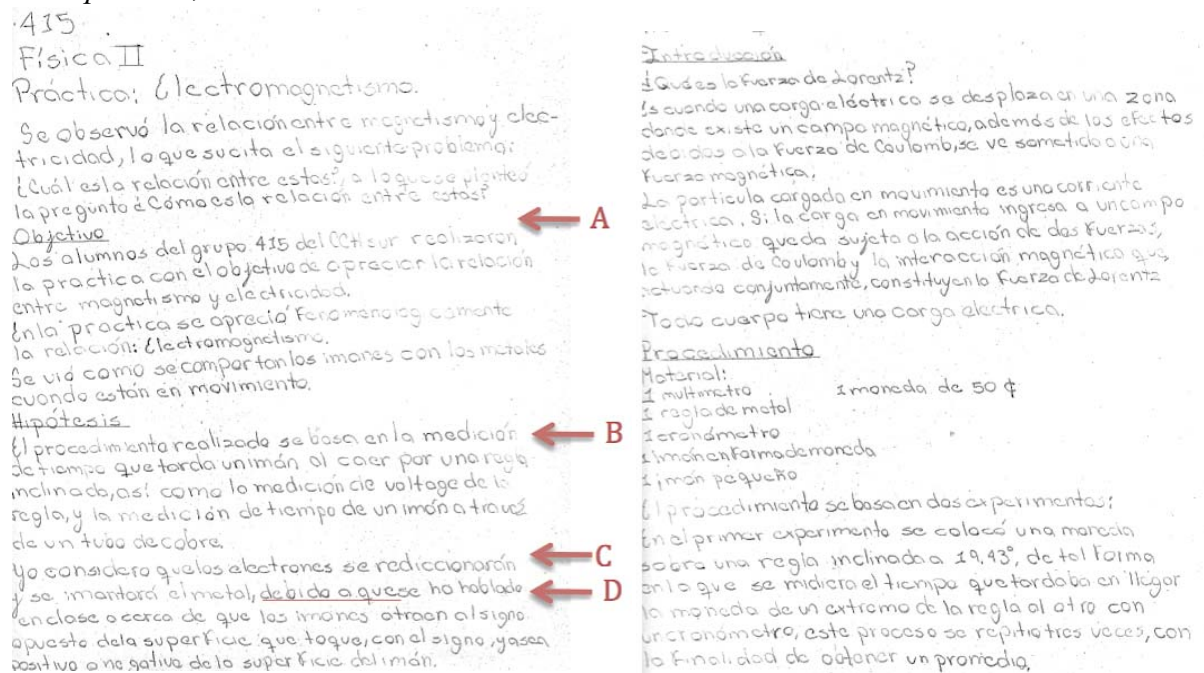 415
Física II
Práctica: Electromagnetismo.
Se observó la relación entre magnetismo y elec-
tricidad, lo que sucita el siguiente problema:
¿Cuál es la relación entre estas?, a lo que se planteó
la pregunta ¿Cómo es la relación entre estas?
A
Objetivo
Los alumnos del grupo 415 del CCH sur realizaron
la practica con el objetivo de apreciar la relación
entre magnetismo y electricidad.
En la practica se apreció fenomenologicamente
la relación: Electromagnetismo.
Se vió como se comportan los imanes con los metales
cuando están en movimiento.
Hipótesis
El procedimiento realizado se basa en la medición
B
de tiempo que tarda un imán al caer por una regla
inclinada, así como la medición de voltage de la
regla, y la medición de tiempo de un imán a travéz
de un tubo de cobre.
Yo considero que los electrones se rediccionarón
C
y se imantará el metal, debido a que se ha hablado
D
en clase acerca de que los imanes atraen al signo
opuesto de la superficie que toque, con el signo, ya sea
positivo o negativo de la superficie del imán.
Introducción
¿Qué es la fuerza de Lorentz?
Es cuando una carga eléctrica se desplaza en una zona
donde existe un campo magnético, además de los efectos
debidos a la fuerza de Coulomb, se ve sometida a una
fuerza magnética.
La partícula cargada en movimiento es una corriente
eléctrica. Si la carga en movimiento ingresa a un campo
magnético queda sujeta a la acción de dos fuerzas,
la fuerza de Coulomb y la interacción magnética que,
actuando conjuntamente, constituyen la fuerza de Lorentz
Todo cuerpo tiene una carga electrica.
Procedimiento
Material:
1 multimetro 1 moneda de 50 ¢
1 regla de metal
1 cronómetro
1 imán en forma de moneda
1 imán pequeño
El procedimiento se basa en dos experimentos:
En el primer experimento se colocó una moneda
sobre una regla inclinada a 19,43°, de tal forma
en la que se midiera el tiempo que tardaba en llegar
la moneda de un extremo de la regla al otro con
un cronómetro, este proceso se repitio tres veces, con
la finalidad de obtener un promedio.